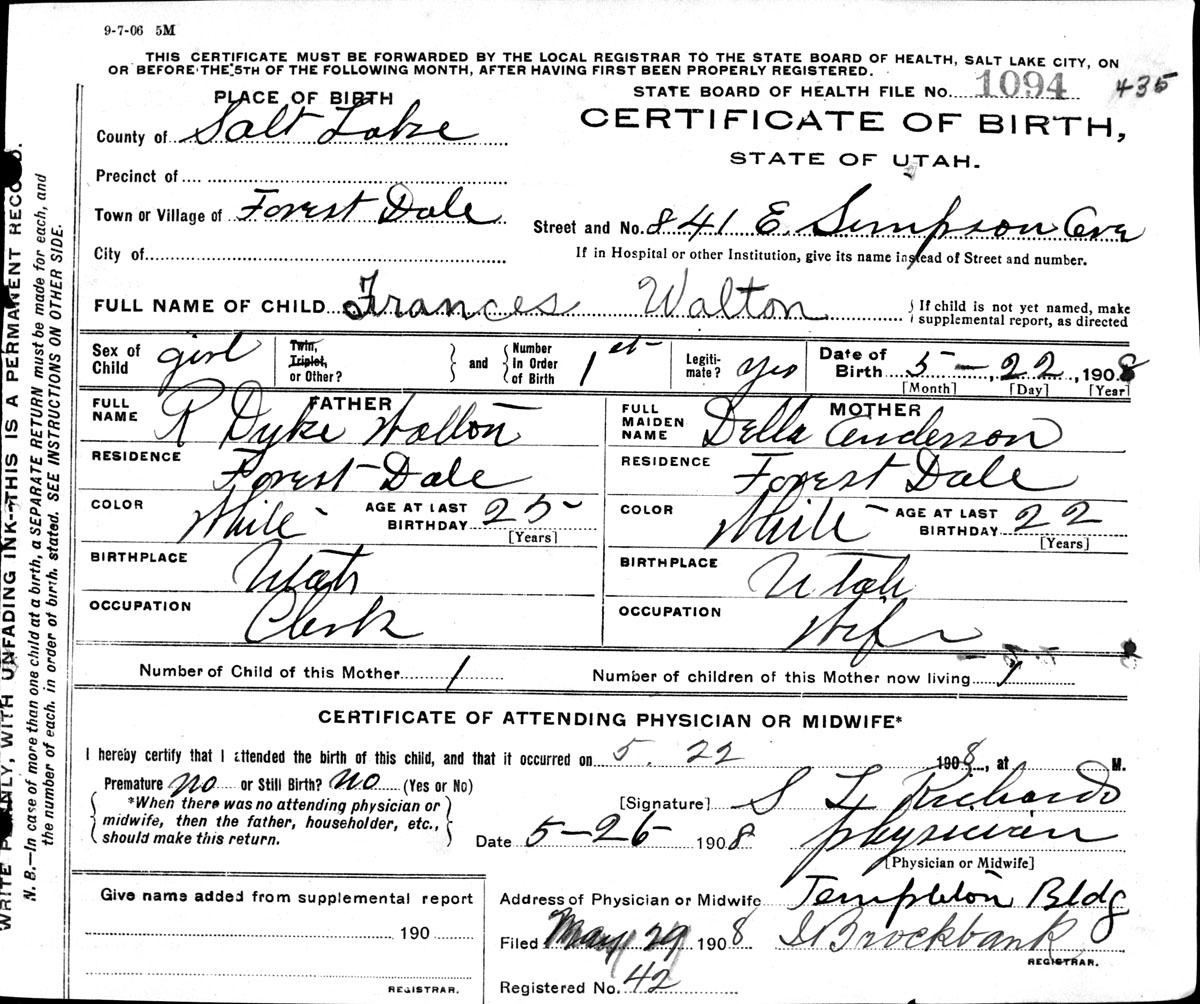 9-7-06 5M
THIS CERTIFICATE MUST BE FORWARDED BY THE LOCAL REGISTRAR TO THE STATE BOARD OF HEALTH, SALT LAKE CITY, ON
OR BEFORE THE 5TH OF THE FOLLOWING MONTH, AFTER HAVING FIRST BEEN PROPERLY REGISTERED.
STATE BOARD OF HEALTH FILE No. 1094 435
PLACE OF BIRTH
CERTIFICATE OF BIRTH,
STATE OF UTAH.
County of Salt Lake
Precinct of
Town or Village of Forest Dale
Street and No. 841 E. Simpson Ave
City of
If in Hospital or other Institution, give its name instead of Street and number.
FULL NAME OF CHILD Frances Walton
} If child is not yet named, make
supplemental report, as directed
Sex of Child girl
Twin, Triplet, or Other?
and Number In Order of Birth 1st
Legiti-mate? yes
Date of Birth 5 - 22, 1908
[Month] [Day] [Year]
FATHER
FULL NAME R Dyke Walton
RESIDENCE Forest Dale
COLOR White
AGE AT LAST BIRTHDAY 25
[Years]
BIRTHPLACE Utah
OCCUPATION Clerk
MOTHER
FULL MAIDEN NAME Della Anderson
RESIDENCE Forest Dale
COLOR White
AGE AT LAST BIRTHDAY 22
[Years]
BIRTHPLACE Utah
OCCUPATION Wife
Number of Child of this Mother 1
Number of children of this Mother now living 1
CERTIFICATE OF ATTENDING PHYSICIAN OR MIDWIFE*
I hereby certify that I attended the birth of this child, and that it occurred on 5. 22 1908, at M.
Premature no or Still Birth? no (Yes or No)
*When there was no attending physician or
midwife, then the father, householder, etc.,
should make this return.
[Signature] S L Richards
Date 5-26 1908
physician
[Physician or Midwife]
Give name added from supplemental report
190
REGISTRAR.
Address of Physician or Midwife Templeton Bldg
Filed May 29 1908 Brockbank
REGISTRAR.
Registered No. 42
WRITE PLAINLY, WITH UNFADING INK—THIS IS A PERMANENT RECORD.
N. B.—In case of more than one child at a birth, a SEPARATE RETURN must be made for each, and
the number of each, in order of birth, stated. SEE INSTRUCTIONS ON OTHER SIDE.